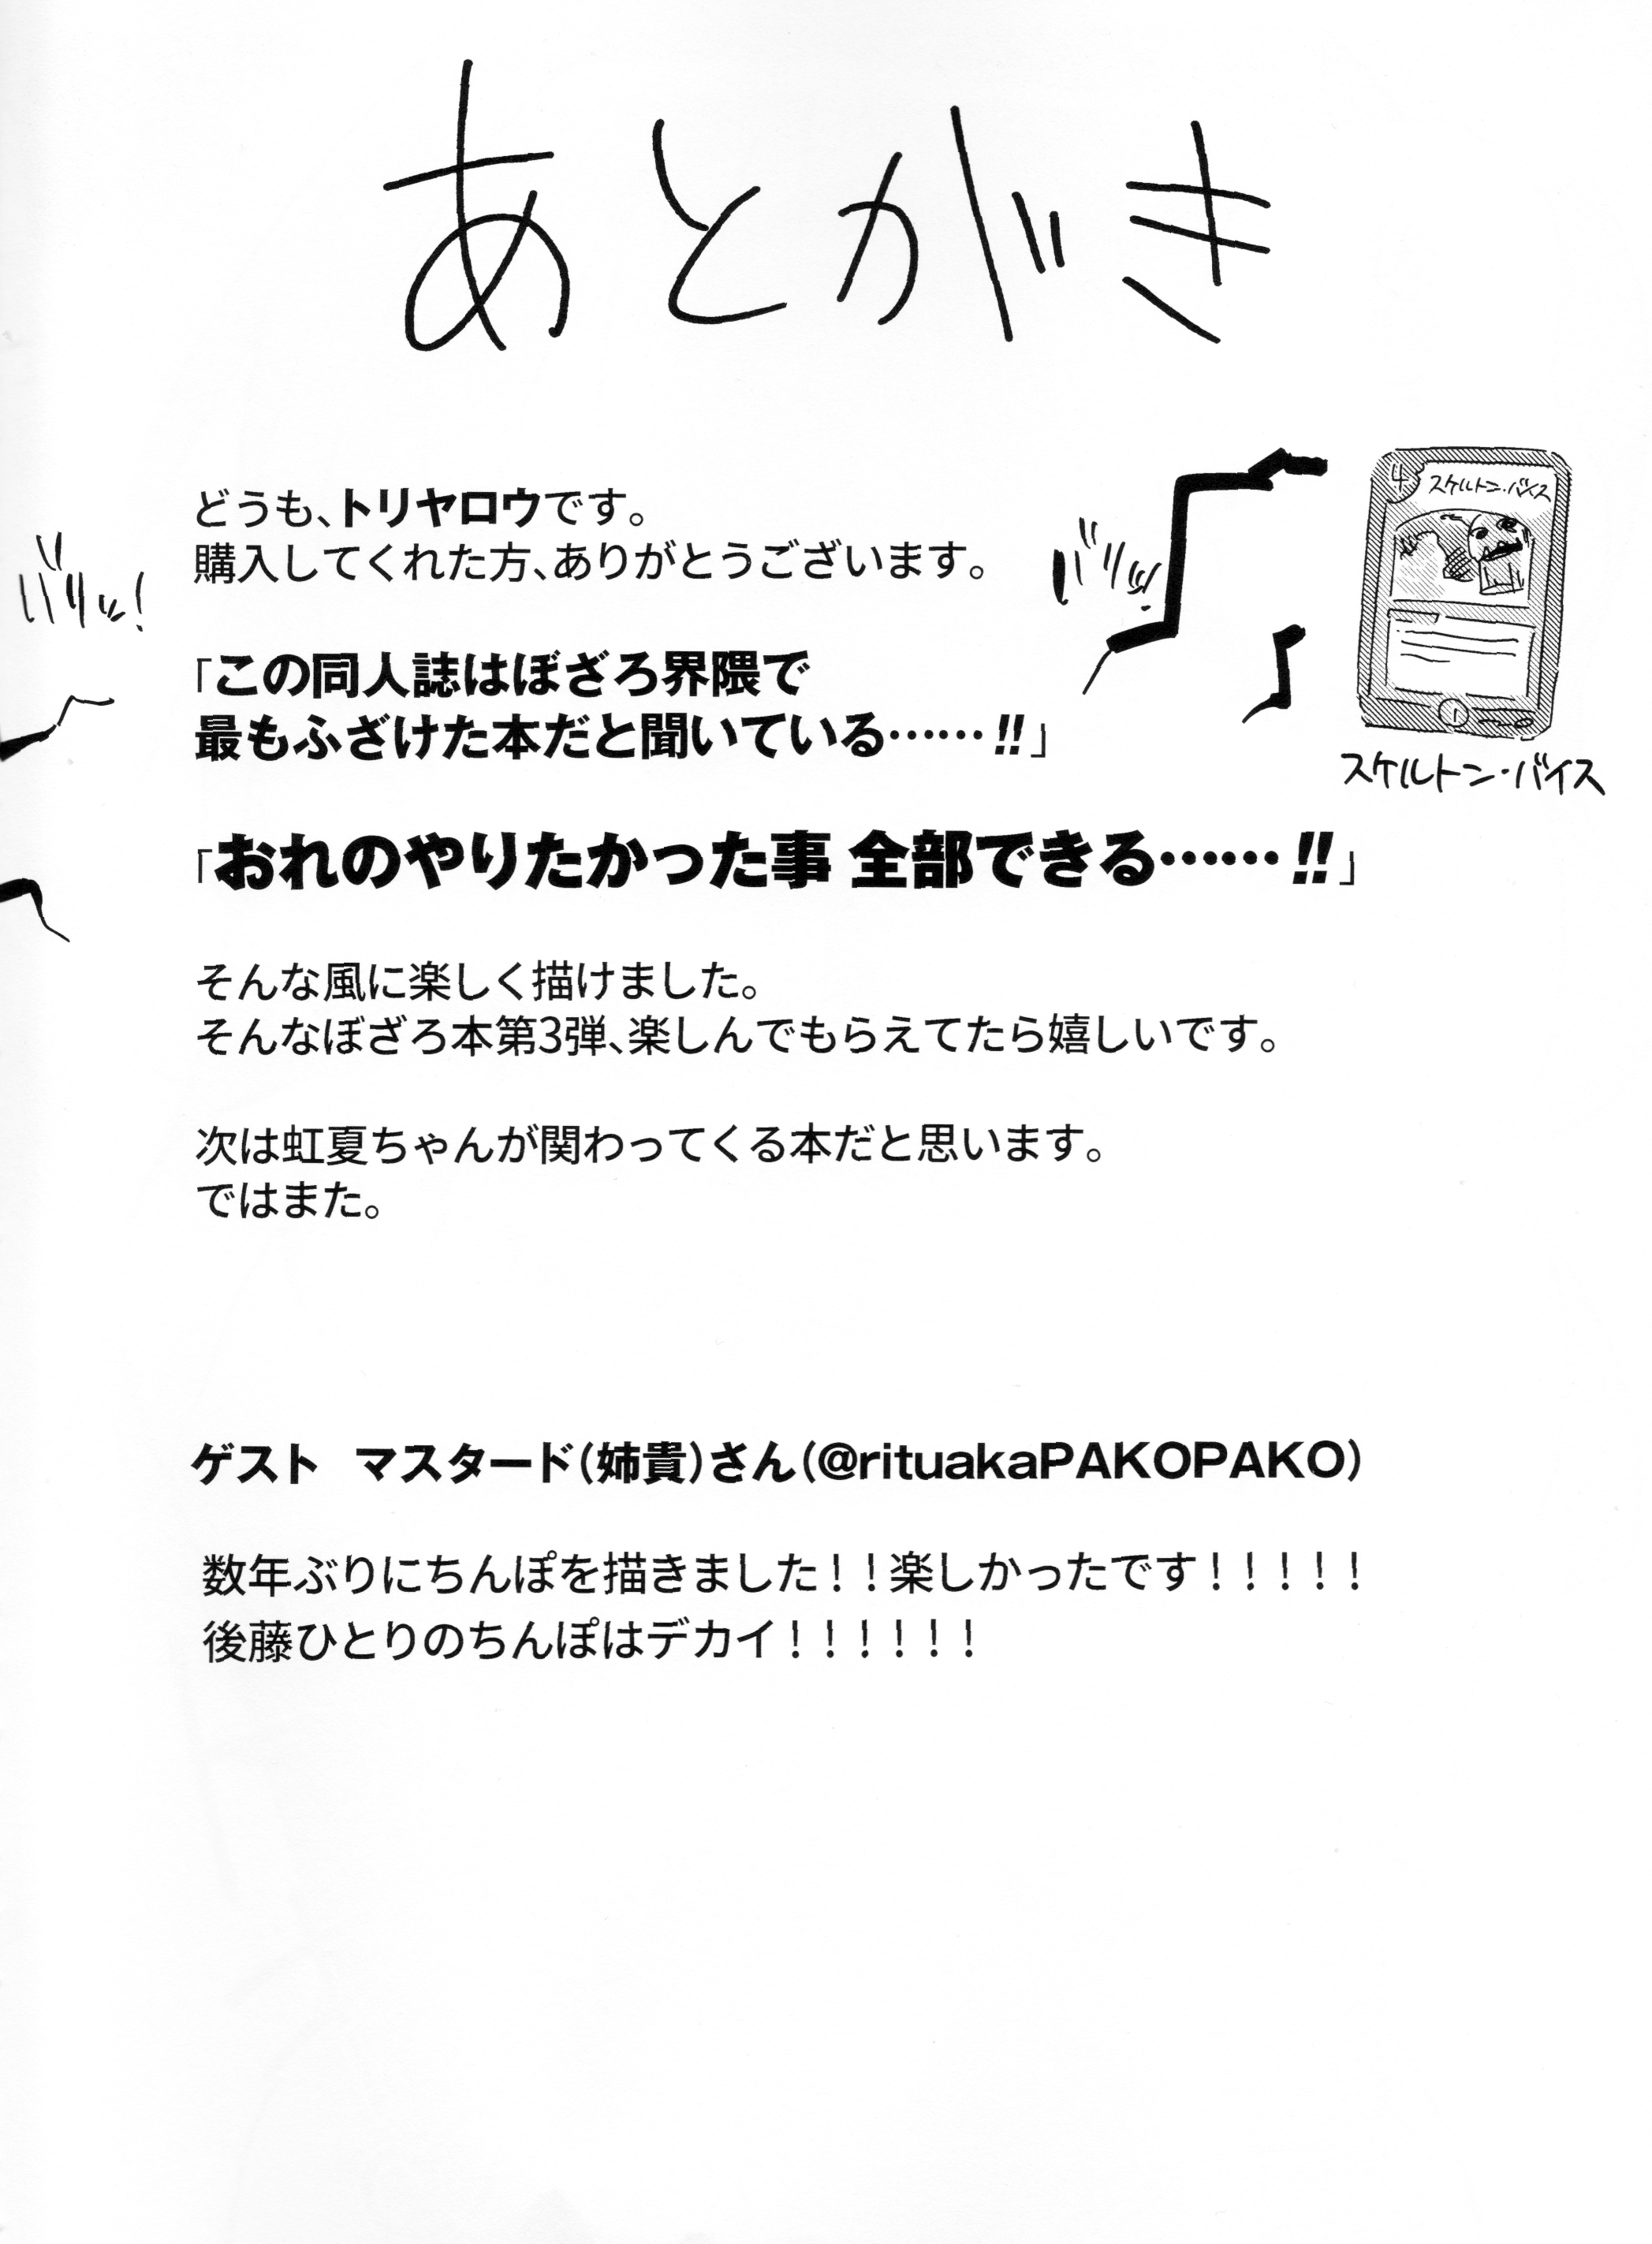 あとがき
どうも、トリヤロウです。
購入してくれた方、ありがとうございます。
バリッ!
バリッ!
4
スケルトン・バイス
1
スケルトン・バイス
「この同人誌はぼざろ界隈で
最もふざけた本だと聞いている……!!」
「おれのやりたかった事 全部できる……!!」
そんな風に楽しく描けました。
そんなぼざろ本第3弾、楽しんでもらえてたら嬉しいです。
次は虹夏ちゃんが関わってくる本だと思います。
ではまた。
ゲスト　マスタード(姉貴)さん(@rituakaPAKOPAKO)
数年ぶりにちんぽを描きました！！楽しかったです！！！！！
後藤ひとりのちんぽはデカイ！！！！！！